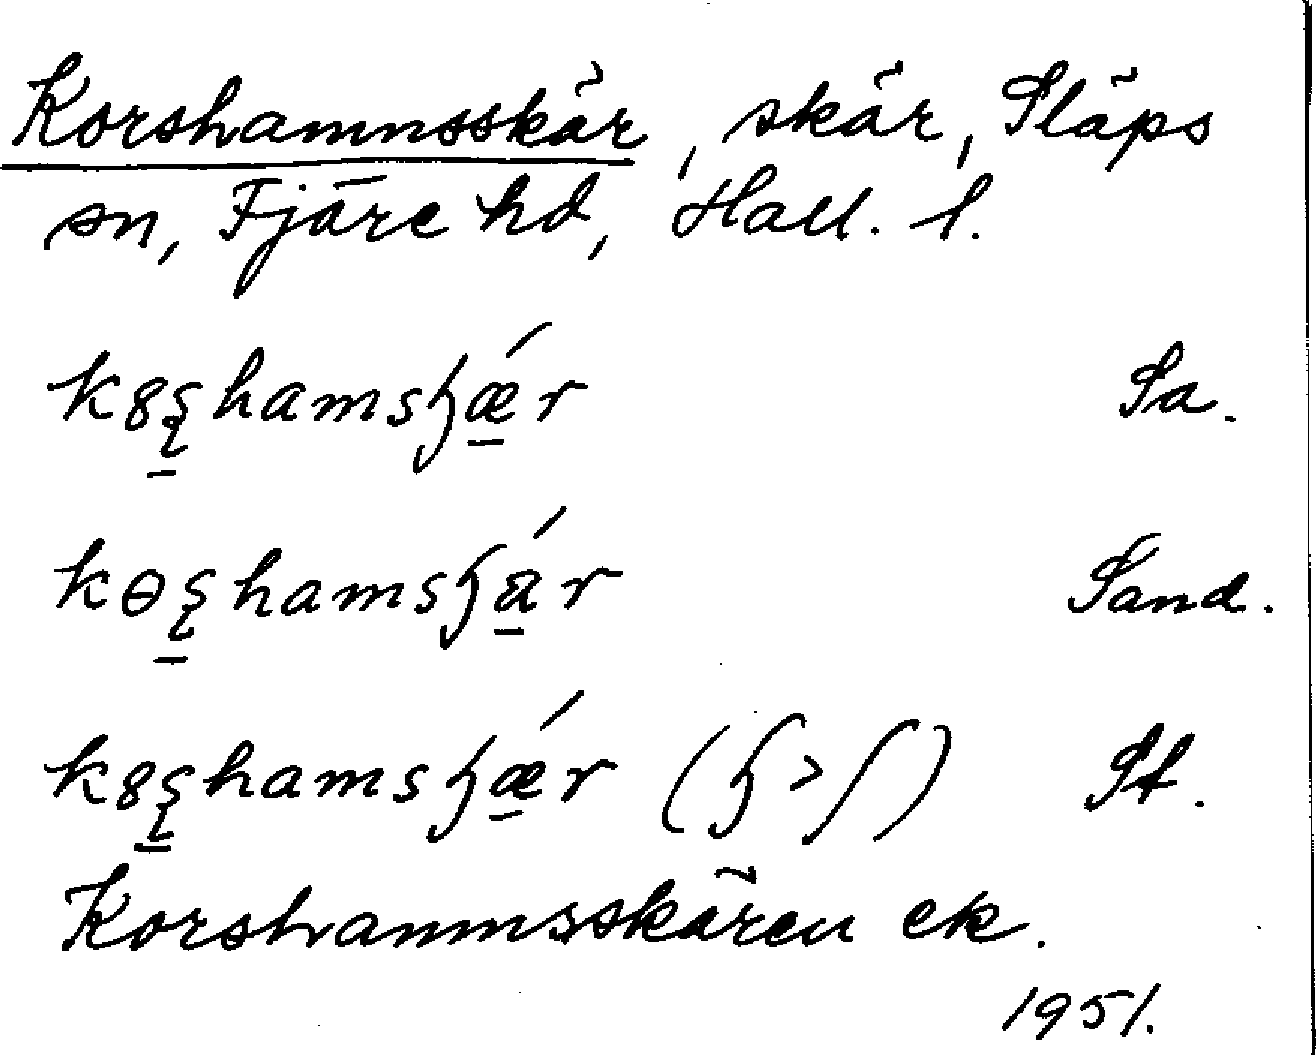 Korshamnsskär, skär, Släps
sn, Fjäre hd, Hall. l.
k8ʂhamsɧǽr Sa.
kɵʂhamsɧár Sand.
k8ʂhamsɧǽr (ɧ>ʃ) St.
Korshamnsskären ek.
1951.